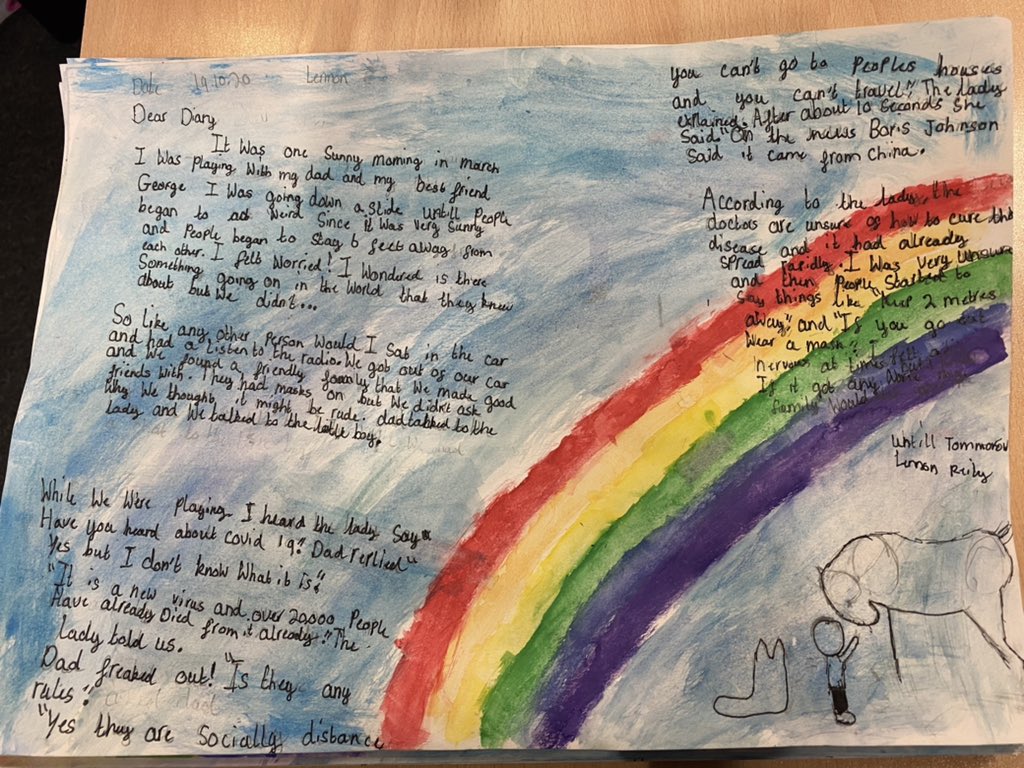 Date 19.10.20 Lennon
Dear Diary
It Was one Sunny morning in march
I Was Playing With my dad and my best friend
George I Was going down a slide untill People
began to act Weird Since it Was very Sunny
and People began to Stay 6 feet away from
each other. I felt Worried! I Wondered is there
Something going on in the World that they knew
about but We didn't...
So like any other Person Would I Sat in the car
and had a listen to the radio. We got out of our car
and We found a friendly family that We made good
friends With. They had masks on but We didn't ask
Why We thought it might be rude. dad talked to the
lady and We talked to the little boy.
While We Were Playing I heard the lady Say"
Have you heard about covid 19?" Dad replied"
Yes but I don't know What it is"
"It is a new virus and over 20,000 People
Have already Died from it already." The
lady told us.
Dad freaked out! "Is they any
rules?"
"Yes they are Socially distance
you can't go to Peoples houses
and you can't travel". The lady
explained. After about 10 Seconds She
Said "On the news Boris Johnson
Said it came from China.
According to the lady, the
doctors are unsure of how to cure this
disease and it had already
spread rapidly. I Was very unsure
and then People Started to
Say things like "keep 2 metres
away". and "If you go out
Wear a mask". I
nervous at times
If it got any
family Would
untill Tommorow
Lennon